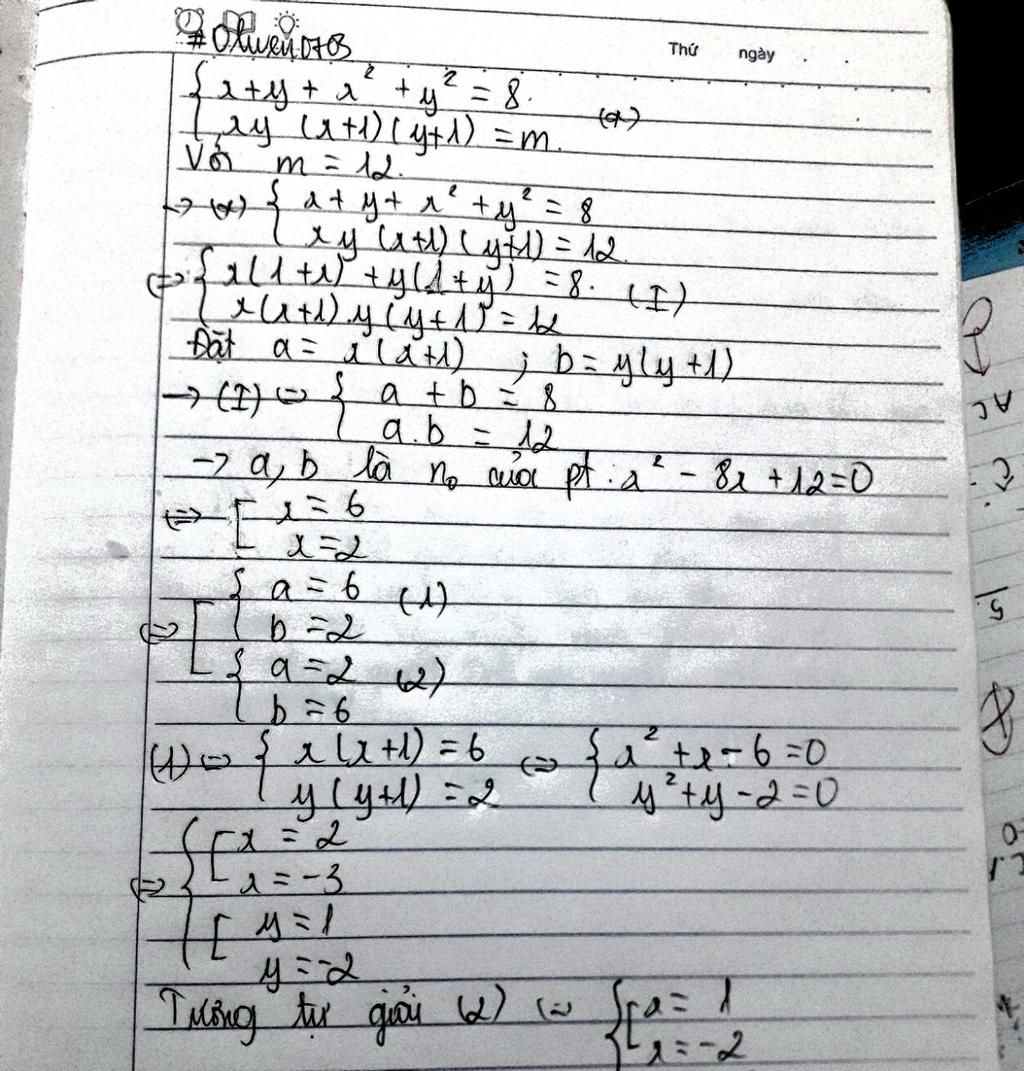 #Olwen0703
Thứ ngày
{ x+y + x² + y² = 8.
{ xy (x+1)(y+1) = m. (*)
Với m = 12.
→ (*) { x + y + x² + y² = 8
{ xy (x+1)(y+1) = 12.
<=> { x(1+x) + y(1+y) = 8. (I)
{ x(x+1).y(y+1) = 12
Đặt a = x(x+1) ; b = y(y+1)
→ (I) <=> { a + b = 8
{ a.b = 12
→ a, b là n₀ của pt: x² - 8x + 12=0
<=> [ x = 6
[ x = 2
<=> [ { a = 6 (1)
{ b = 2
{ a = 2 (2)
{ b = 6
(1) <=> { x(x+1) = 6 <=> { x² + x - 6 = 0
{ y(y+1) = 2 { y² + y - 2 = 0
<=> { [ x = 2
[ x = -3
[ y = 1
[ y = -2
Tương tự giải (2) <=> { [ x = 1
[ x = -2